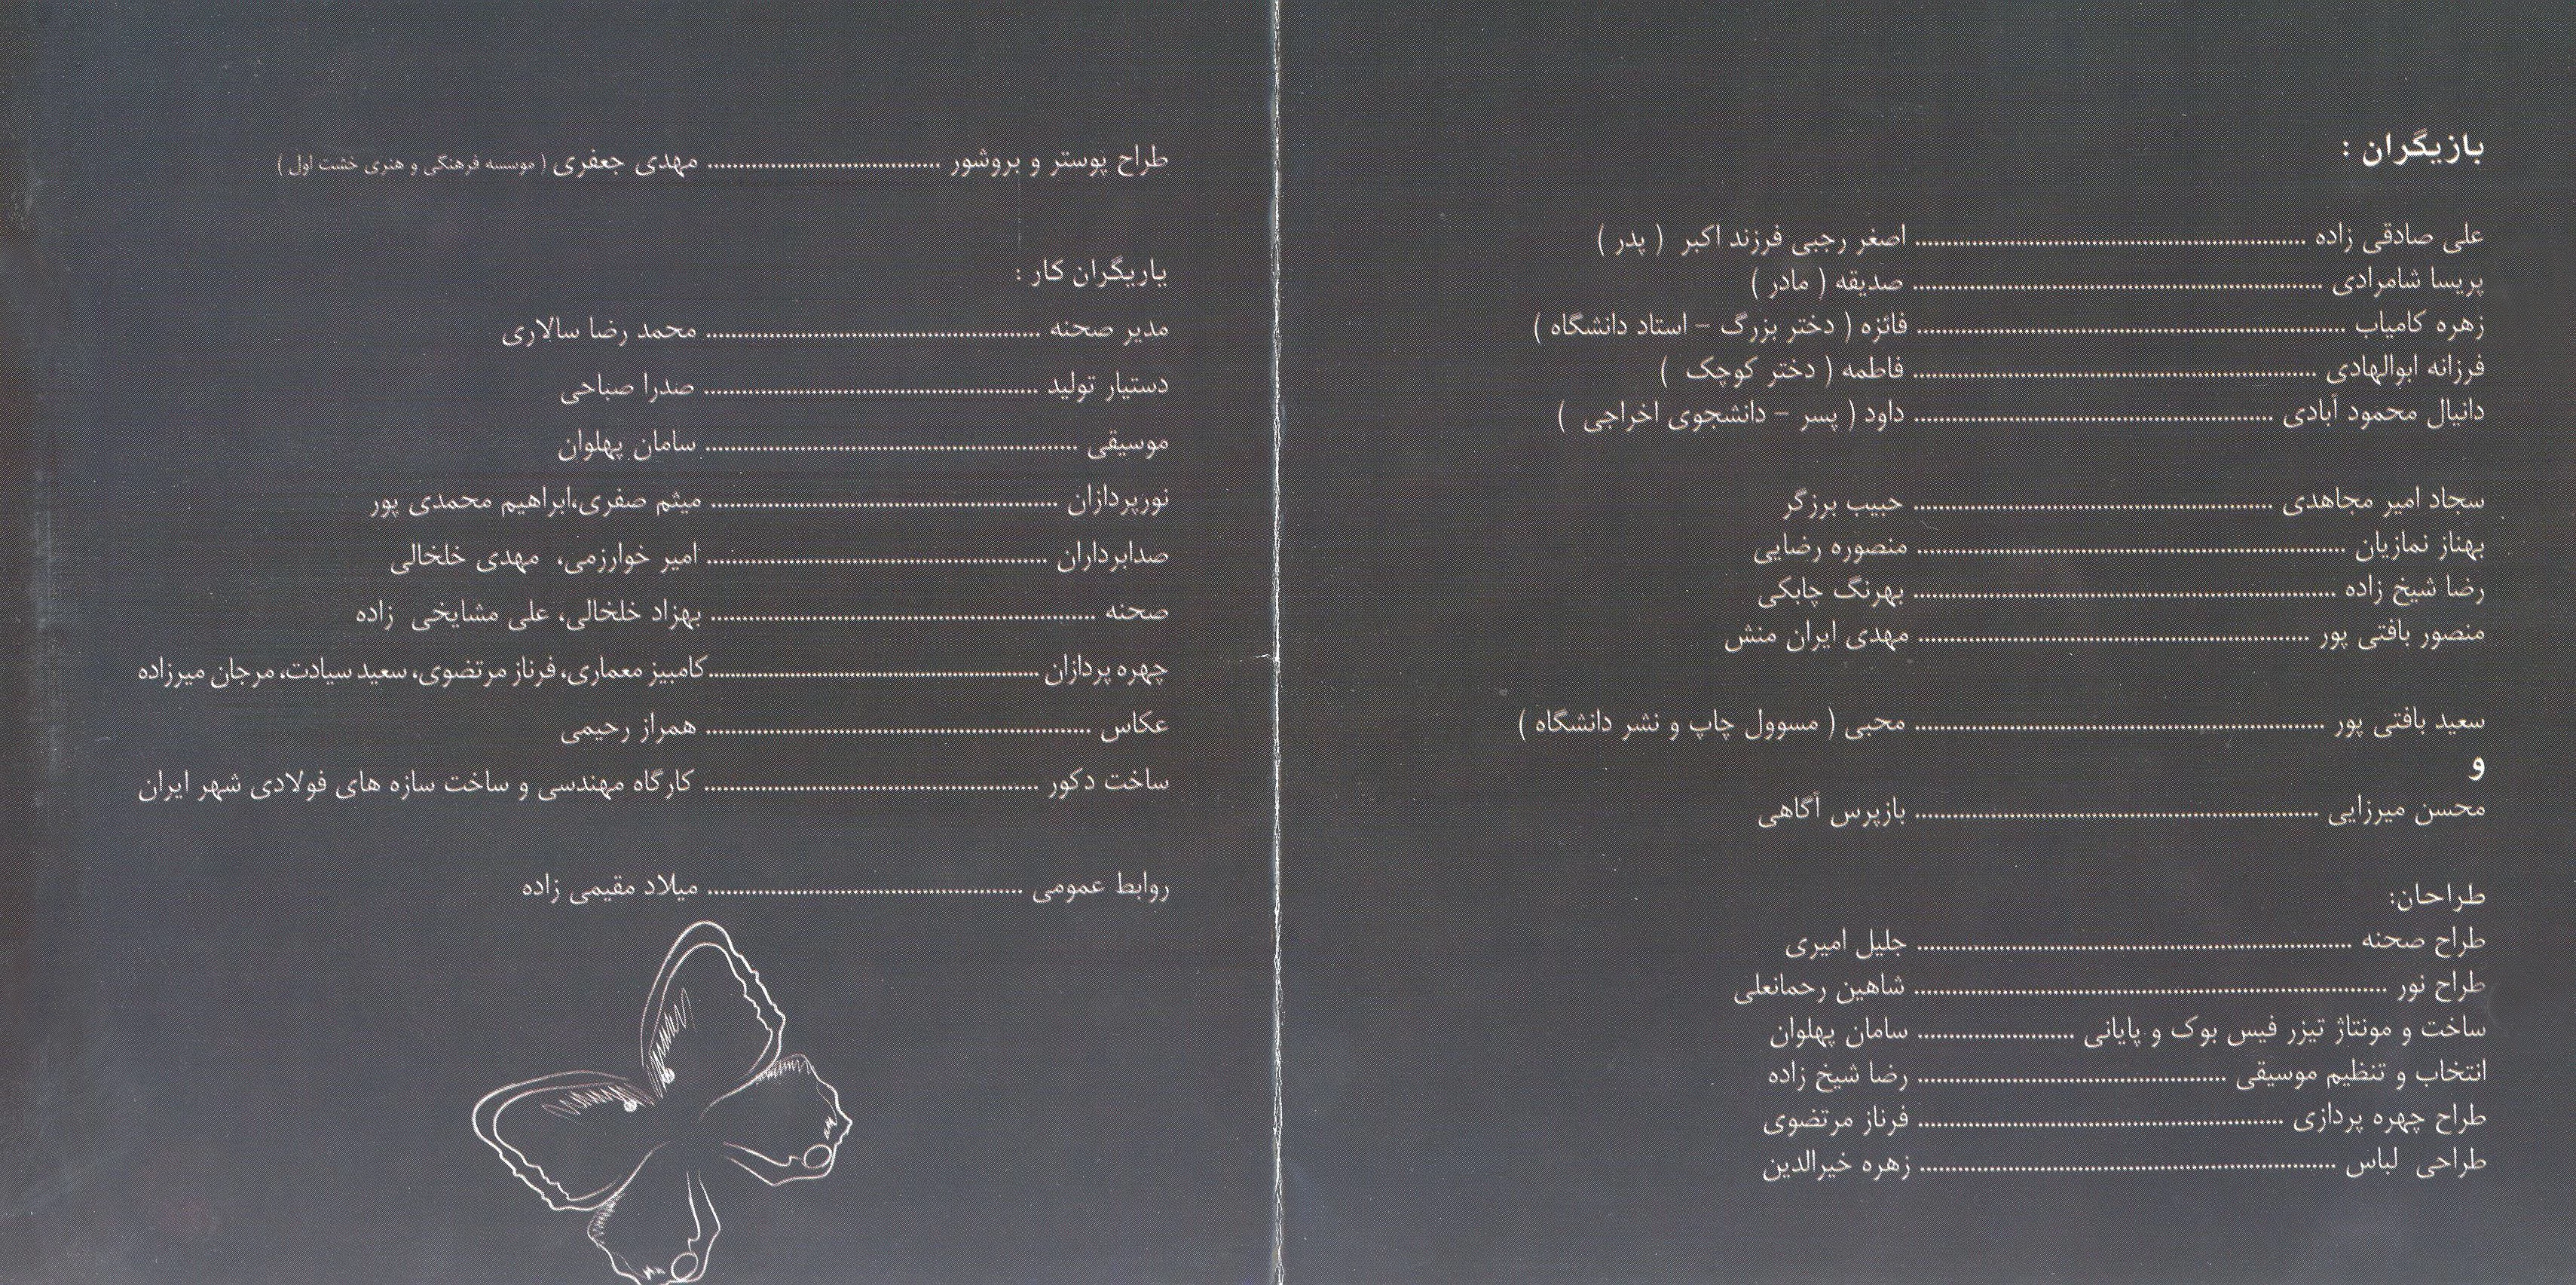 بازیگران :
علی صادقی زاده ........ اصغر رجبی فرزند اکبر ( پدر )
پریسا شامرادی ........ صدیقه ( مادر )
زهره کامیاب ........ فائزه ( دختر بزرگ - استاد دانشگاه )
فرزانه ابوالهادی ........ فاطمه ( دختر کوچک )
دانیال محمود آبادی ........ داود ( پسر - دانشجوی اخراجی )
سجاد امیر مجاهدی ........ حبیب برزگر
بهناز نمازیان ........ منصوره رضایی
رضا شیخ زاده ........ بهرنگ چابکی
منصور بافتی پور ........ مهدی ایران منش
سعید بافتی پور ........ محبی ( مسوول چاپ و نشر دانشگاه )
و
محسن میرزایی ........ بازپرس آگاهی
طراحان:
طراح صحنه ........ جلیل امیری
طراح نور ........ شاهین رحمانعلی
ساخت و مونتاژ تیزر فیس بوک و پایانی ........ سامان پهلوان
انتخاب و تنظیم موسیقی ........ رضا شیخ زاده
طراح چهره پردازی ........ فرناز مرتضوی
طراحی لباس ........ زهره خیرالدین
طراح پوستر و بروشور ........ مهدی جعفری ( موسسه فرهنگی و هنری خشت اول )
یاریگران کار :
مدیر صحنه ........ محمد رضا سالاری
دستیار تولید ........ صدرا صباحی
موسیقی ........ سامان پهلوان
نورپردازان ........ میثم صفری،ابراهیم محمدی پور
صدابرداران ........ امیر خوارزمی، مهدی خلخالی
صحنه ........ بهزاد خلخالی، علی مشایخی زاده
چهره پردازان ........ کامبیز معماری، فرناز مرتضوی، سعید سیادت، مرجان میرزاده
عکاس ........ همراز رحیمی
ساخت دکور ........ کارگاه مهندسی و ساخت سازه های فولادی شهر ایران
روابط عمومی ........ میلاد مقیمی زاده